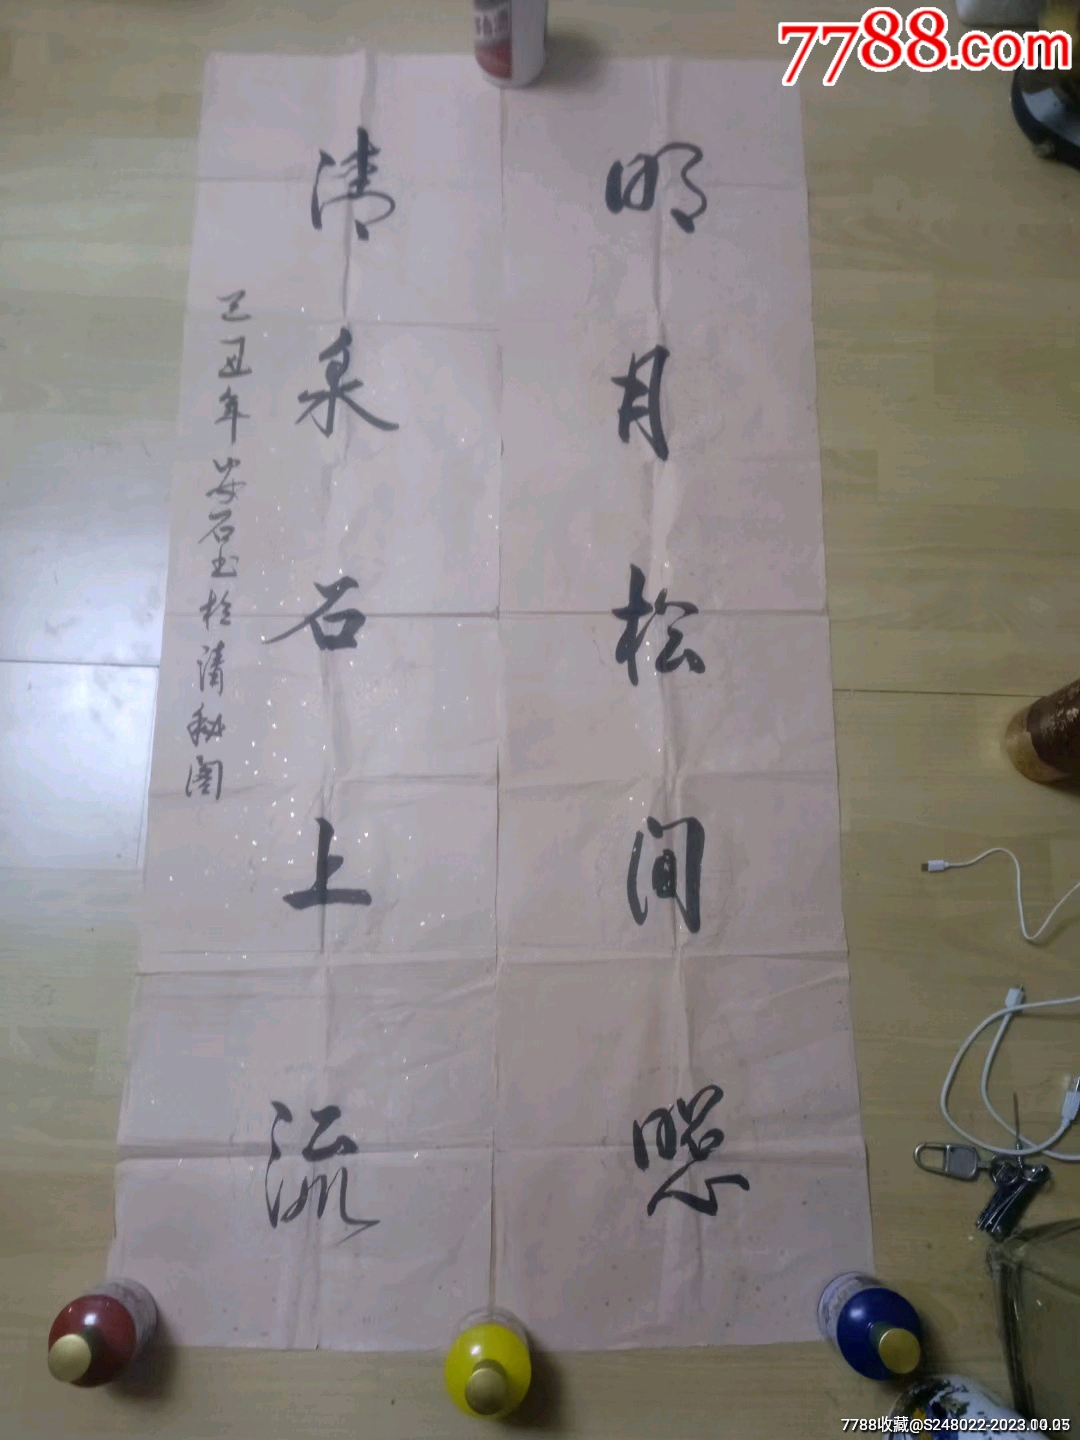 7788.com
明月松间照
清泉石上流
己丑年安石书于清秘阁
7788收藏@S248022-2023.